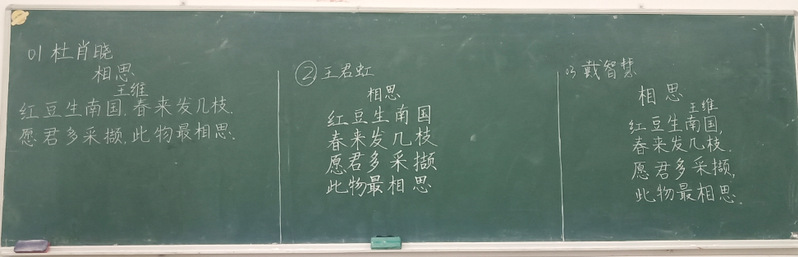 01 杜肖晓
相思
王维
红豆生南国,春来发几枝.
愿君多采撷,此物最相思.
② 王君虹
相思
红豆生南国
春来发几枝
愿君多采撷
此物最相思
03 戴智慧
相思
王维
红豆生南国,
春来发几枝.
愿君多采撷,
此物最相思.